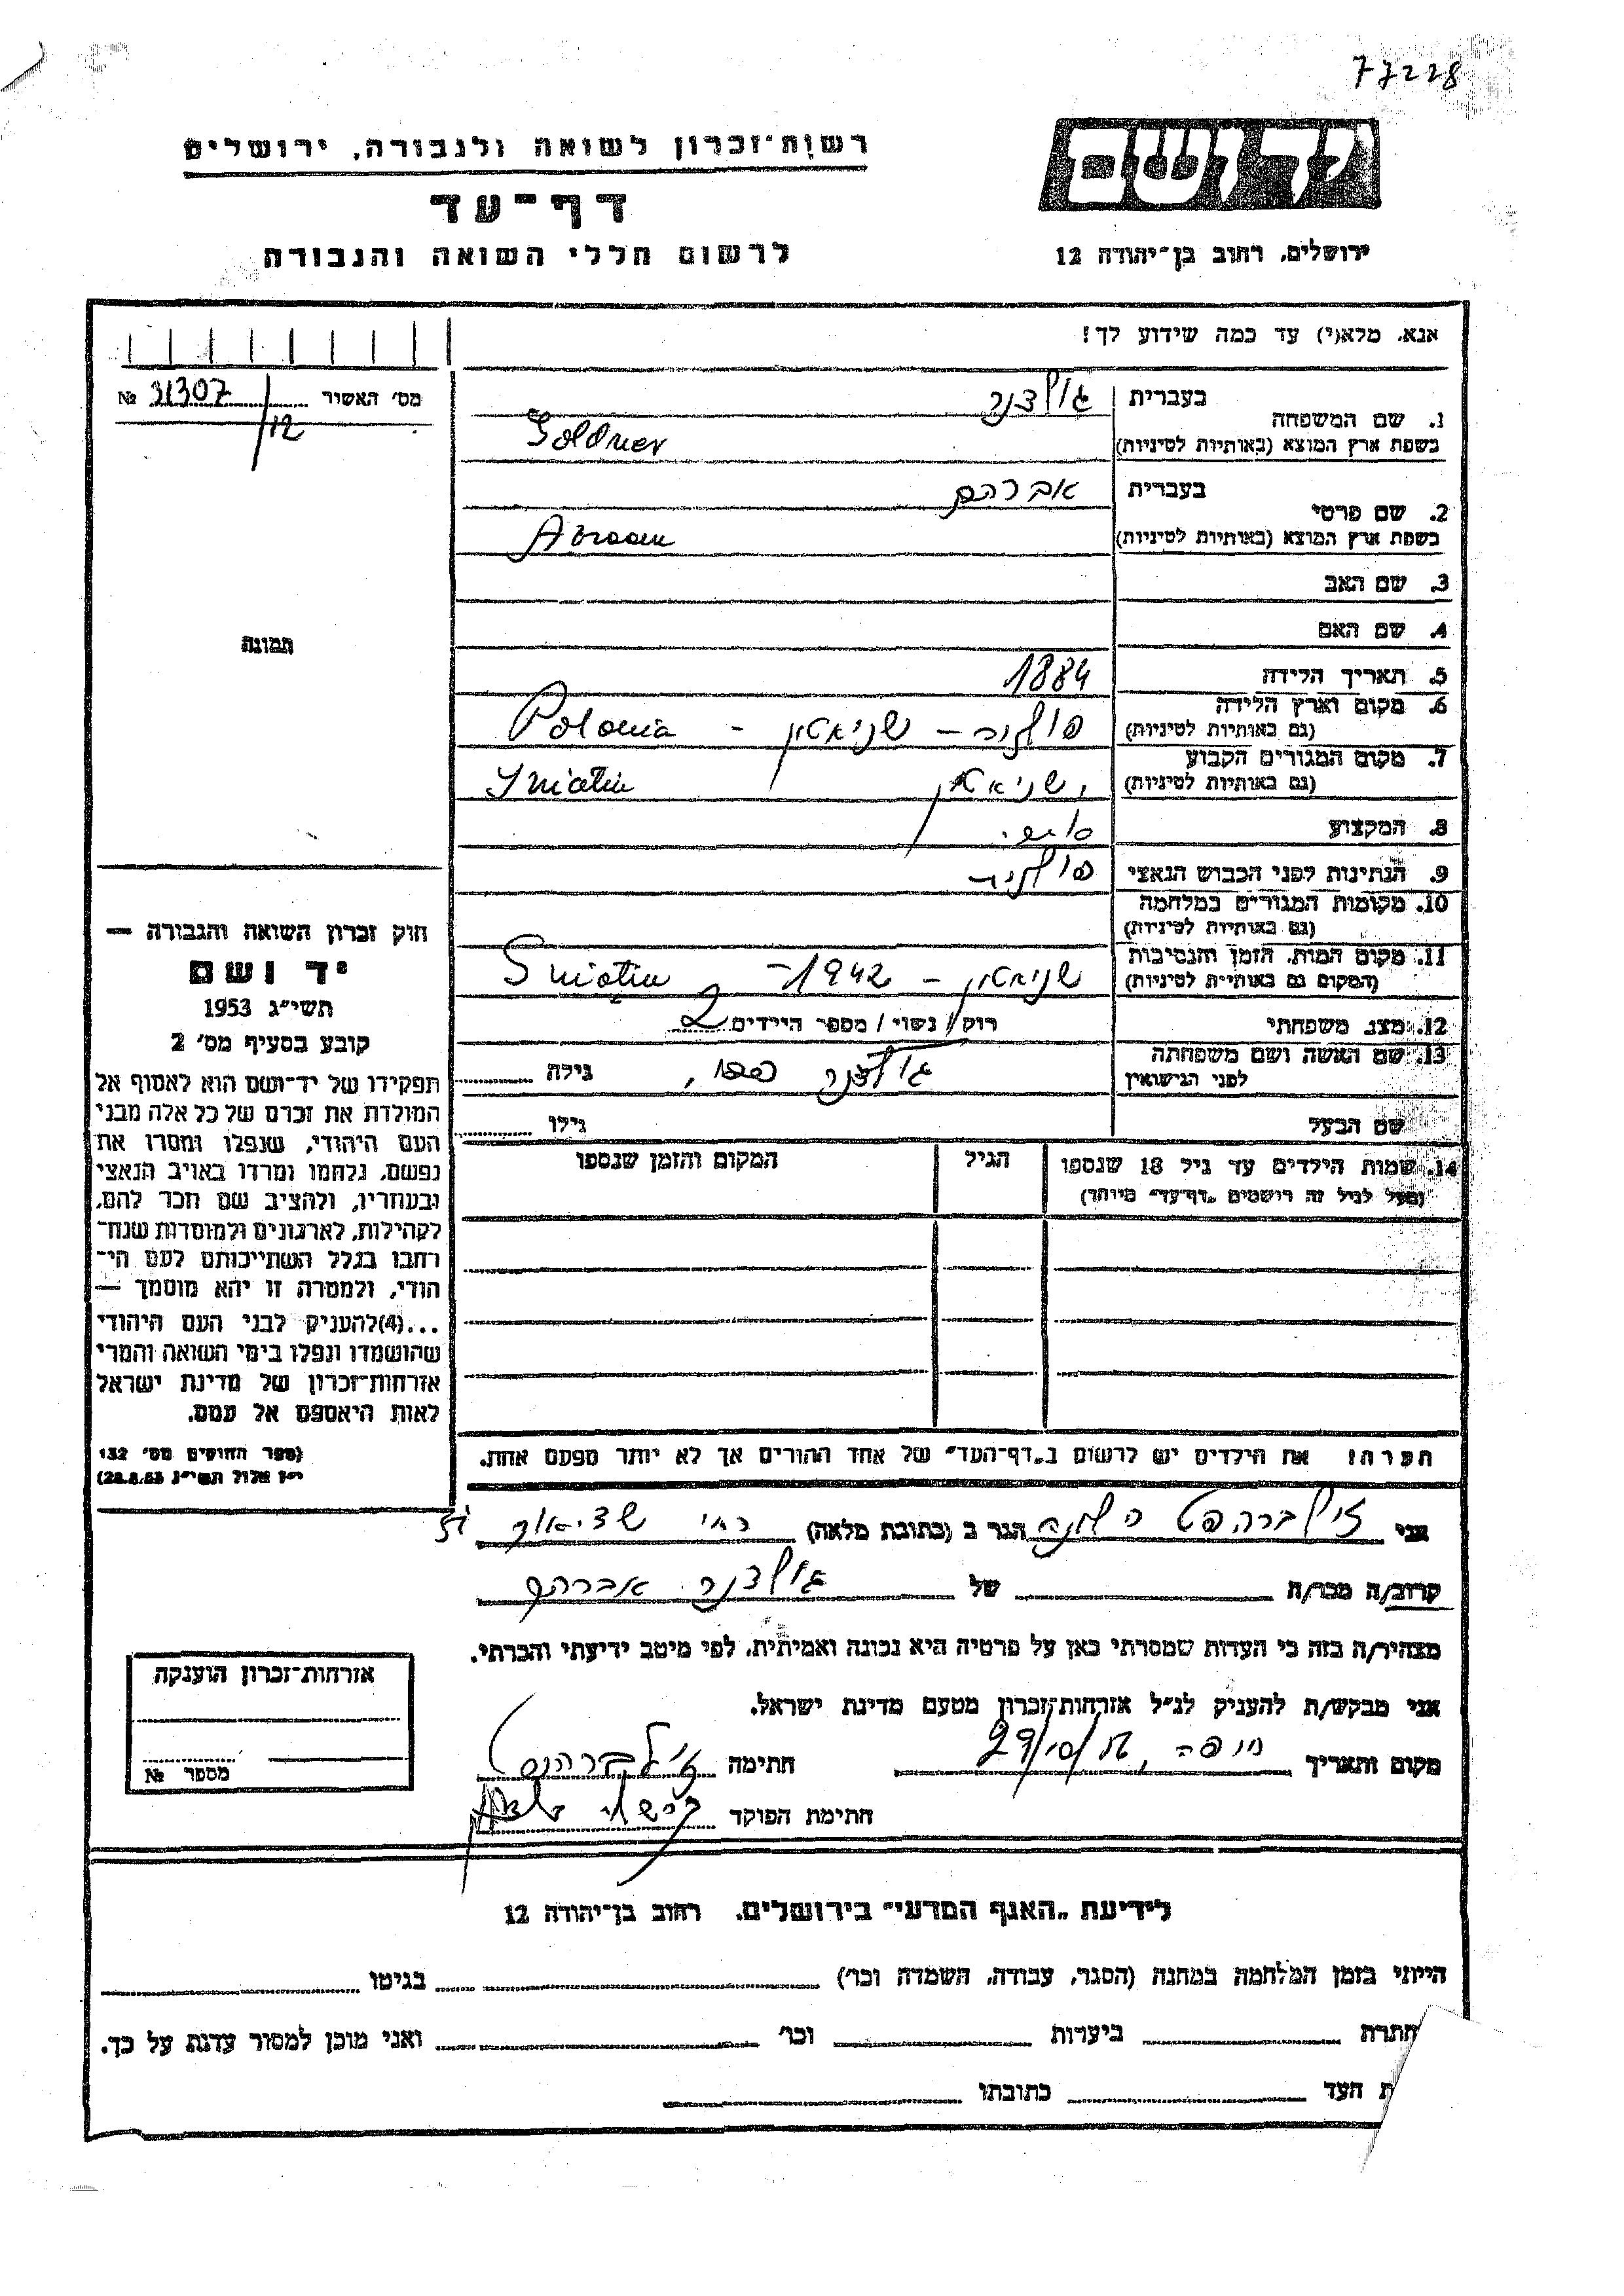 77228
רשות־זכרון לשואה ולגבורה, ירושלים
דף־עד
לרשום חללי השואה והגבורה
יד ושם
ירושלים, רחוב בן־יהודה 12
אנא, מלא(י) עד כמה שידוע לך!
מס' האשור 31307 №
/12
תמונה
1. שם המשפחה
בעברית גולדנר
בשפת ארץ המוצא (באותיות לטיניות) Goldner
2. שם פרטי
בעברית אברהם
בשפת ארץ המוצא (באותיות לטיניות) Abraam
3. שם האב
4. שם האם
5. תאריך הלידה 1884
6. מקום וארץ הלידה
(גם באותיות לטיניות) פולניה – שניאטין – Polonia
7. מקום המגורים הקבוע
(גם באותיות לטיניות) שניאטין, Sniatin
8. המקצוע
9. הנתינות לפני הכבוש הנאצי פולניה
10. מקומות המגורים במלחמה
(גם באותיות לטיניות)
11. מקום המות, הזמן והנסיבות
(המקום גם באותיות לטיניות) שניאטין – 1942 – Sniatin
12. מצב משפחתי רוק/ נשוי/ מספר הילדים 2
13. שם האשה ושם משפחתה
לפני הנישואין גולדנר גילה
שם הבעל גילו
14. שמות הילדים עד גיל 18 שנספו
(מעל לגיל זה רושמים „דף־עד" מיוחד)
הגיל
המקום והזמן שנספו
הערה: את הילדים יש לרשום ב„דף־העד" של אחד ההורים אך לא יותר מפעם אחת.
חוק זכרון השואה והגבורה —
יד ושם
תשי"ג 1953
קובע בסעיף מס' 2
תפקידו של יד־ושם הוא לאסוף אל
המולדת את זכרם של כל אלה מבני
העם היהודי, שנפלו ומסרו את
נפשם, נלחמו ומרדו באויב הנאצי
ובעוזריו, ולהציב שם וזכר להם,
לקהילות, לארגונים ולמוסדות שנח־
רבו בגלל השתייכותם לעם הי־
הודי, ולמטרה זו יהא מוסמך —
...(4)להעניק לבני העם היהודי
שהושמדו ונפלו בימי השואה והמרי
אזרחות־זכרון של מדינת ישראל
לאות היאספם אל עמם.
(ספר החוקים מס' 132
י"ז אלול תשי"ג 28.8.53)
אני זילברהפט הגר ב (כתובת מלאה) רח'
קרוב/ה מכר/ה של גולדנר אברהם
מצהיר/ה בזה כי העדות שמסרתי כאן על פרטיה היא נכונה ואמיתית, לפי מיטב ידיעתי והכרתי.
אני מבקש/ת להעניק לנ"ל אזרחות־זכרון מטעם מדינת ישראל.
מקום ותאריך חיפה, חתימה
חתימת הפוקד
אזרחות־זכרון הוענקה
מספר №
לידיעת „האגף המדעי" בירושלים, רחוב בן־יהודה 12
הייתי בזמן המלחמה במחנה (הסגר, עבודה, השמדה וכר') בגיטו
חתרת ביערות וכו' ואני מוכן למסור עדות על כך.
ת העד כתובתו